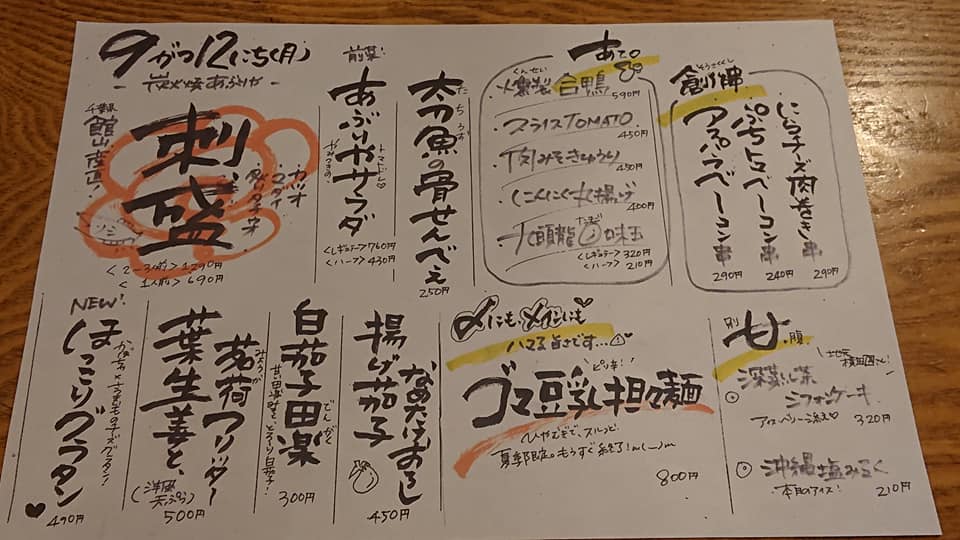 9がつ12にち(月)
- 炭火焼あぶりや -
千葉県
館山産!
刺盛
カツオ
マダイ
タチウオ
<2~3人前> 1290円
<1人前> 690円
前菜!
あぶりやサラダ
トマトドレ♡
<レギュラー> 760円
<ハーフ> 430円
たちうお
太刀魚の骨せんべえ
250円
あて。
くんせい
・燻製合鴨
590円
・スライスTOMATO
450円
・肉みそきゅうり
450円
・にんにく丸揚げ
400円
たまご
<レギュラー> 320円
<ハーフ> 210円
そうさくくし
創作串
にらチーズ肉巻き串
290円
ぷちトマベーコン串
240円
アスパラベーコン串
290円
NEW!
ほっこりグラタン
490円
みょうが
茗荷フリッター
葉生姜と、
(洋風天ぷら)
500円
でんがく
白茄子田楽
300円
なめたけおろし
揚げ茄子
450円
〆にも、メインにも
ハマる旨さです…!
ピリッキ!
ゴマ豆乳坦々麺
ひやむぎで、スルッと
夏季限定。もうすぐ終了!
800円
別
甘。腹
・深蒸し茶
シフォンケーキ
320円
・沖縄塩みるく
本日のアイス!
210円